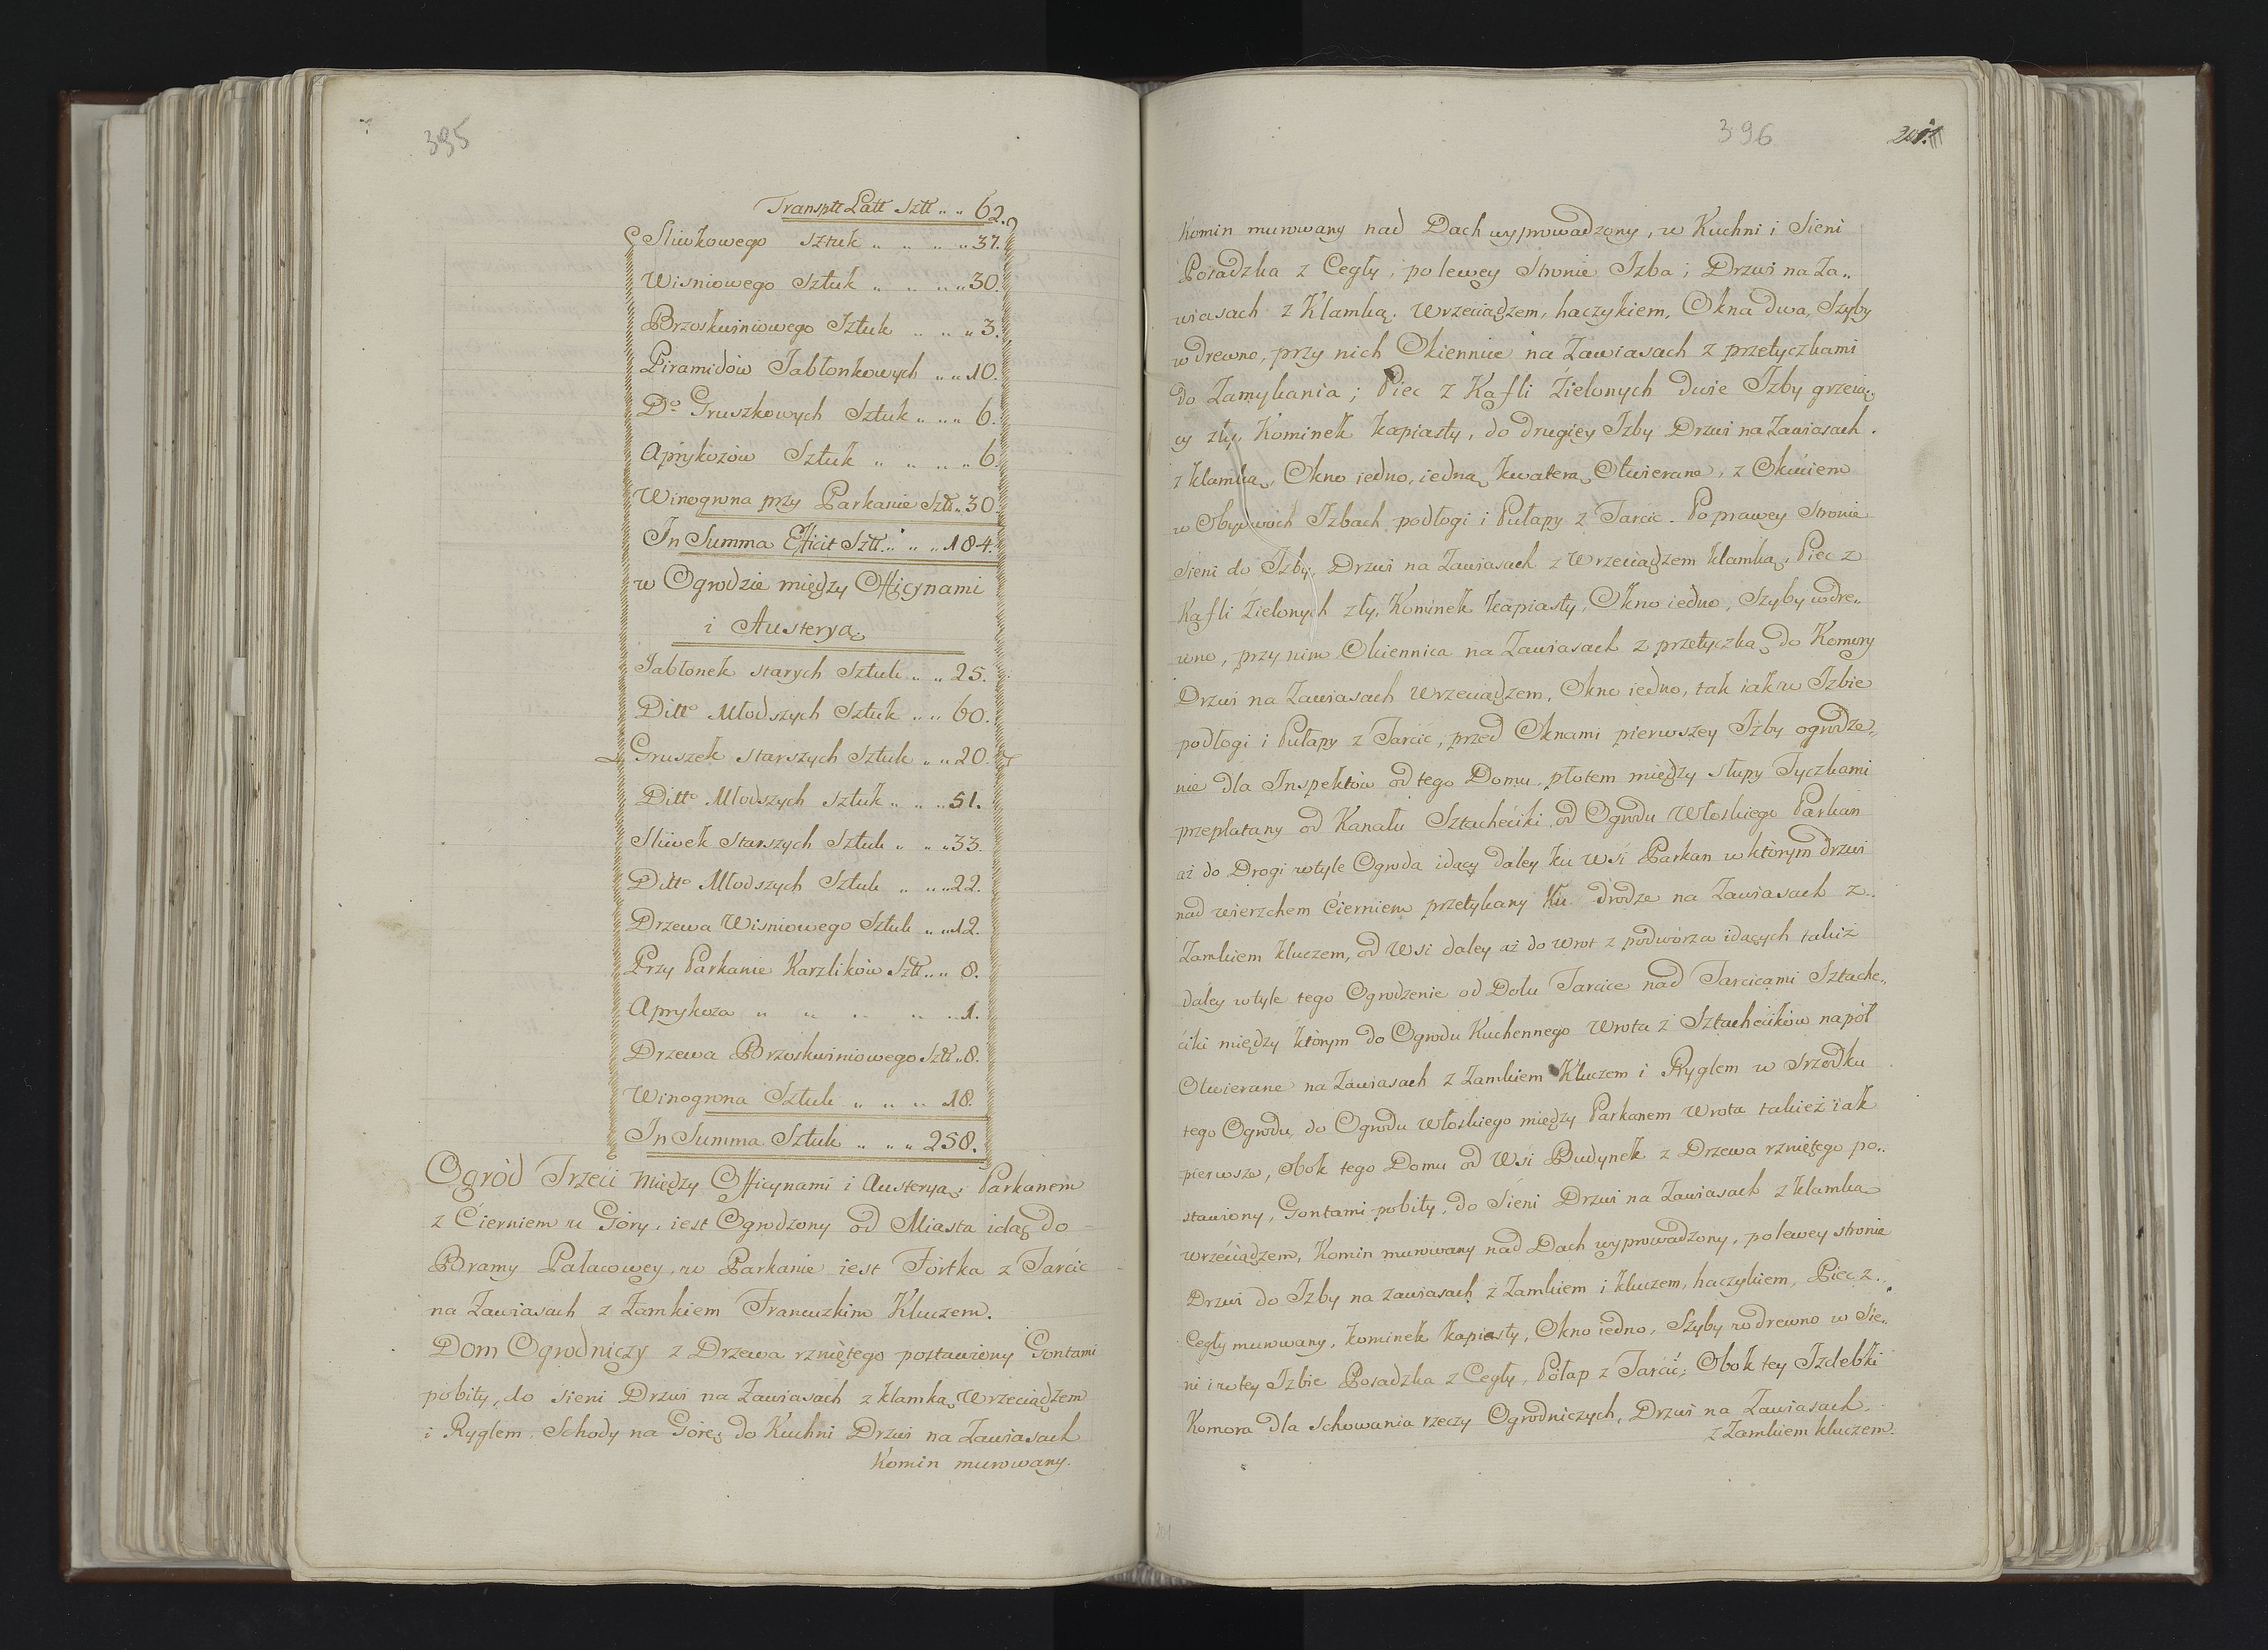 395
Transptt Latt Sztt „ „ 62.
Sliwkowego sztuk „ „ „ „ 37.
Wisniowego Sztuk „ „ „ „ 30.
Brzoskwiniowego Sztuk „ „ „ 3.
Piramidów Jabłonkowych „ „ 10.
Do Gruszkowych Sztuk „ „ „ 6.
Aprykozów Sztuk „ „ „ „ 6.
Winogrona przy Parkanie Sztt „ 30.
In Summa Efficit Sztt „ „ „ 184.
w Ogrodzie między Officynami
i Austeryą
Jabłonek starych Sztuk „ „ 25.
Ditto Młodszych Sztuk „ „ 60.
Gruszek starszych Sztuk „ „ 20.
Ditto Młodszych sztuk „ „ „ 51.
Sliwek Starszych Sztuk „ „ „ 33.
Ditto Młodszych Sztuk „ „ „ 22.
Drzewa Wisniowego Sztuk „ „ 12.
Przy Parkanie Karzlików Sztt „ „ 8.
Aprykoza „ „ „ „ „ 1.
Drzewa Brzoskwiniowego Sztt „ 8.
Winogrona Sztuk „ „ „ 18.
In Summa Sztuk „ „ „ 258.
Ogród Trzeci między Officynami i Austeryą; Parkanem
z Cierniem u Góry, iest Ogrodzony od Miasta idąc do
Bramy Pałacowey, w Parkanie iest Fortka z Tarcic
na Zawiasach z Zamkiem Francuzkim Kluczem.
Dom Ogrodniczy z Drzewa rzniętego postawiony Gontami
pobity, do sieni Drzwi na Zawiasach z klamką Wrzeciądzem
i Ryglem, Schody na Górę; do Kuchni Drzwi na Zawiasach
Komin murowany.
396
Komin murowany nad Dach wyprowadzony, w Kuchni i Sieni
Posadzka z Cegły; po lewey Stronie Izba; Drzwi na Za„
wiasach z Klamką, Wrzeciądzem, haczykiem, Okna dwa, Szyby
w drewno, przy nich Okiennice na Zawiasach z przetyczkami
do Zamykania; Piec z Kafli Zielonych dwie Izby grzeią„
cy zły, Kominek kapiasty, do drugiey Izby Drzwi na Zawiasach
z klamką, Okno iedno, iedną kwaterą Otwierane, z Okuciem
w Obydwóch Izbach podłogi i Pułapy z Tarcic. Po prawey Stronie
Sieni do Izby, Drzwi na Zawiasach z Wrzeciądzem klamką, Piec z
Kafli Zielonych zły, Kominek kapiasty, Okno iedno, Szyby w dre„
wno, przy nim Okiennica na Zawiasach z przetyczką do Komory
Drzwi na Zawiasach Wrzeciądzem, Okno iedno, tak iak w Izbie
podłogi i Pułapy z Tarcic, przed Oknami pierwszey Izby ogrodze„
nie dla Inspektów od tego Domu płotem między słupy Tyczkami
przeplatany od Kanału Sztachéciki od Ogrodu Włoskiego Parkan
aż do Drogi w tyle Ogroda idący daley ku Wsi Parkan w którym drzwi
nad wierzchem Cierniem przetykany Ku drodze na Zawiasach z
Zamkiem kluczem, od Wsi daley aż do Wrot z podworza idących takiż
daley w tyle tego Ogrodzenie od Dołu Tarcice nad Tarcicami Sztache„
ciki między którym do Ogrodu Kuchennego Wrota z Sztachecików napół
Otwierane na Zawiasach z Zamkiem Kluczem i Ryglem w Srzodku
tego Ogrodu, do Ogrodu Włoskiego między Parkanem Wrota takież iak
pierwsze, obok tego Domu od Wsi Budynek z Drzewa rzniętego po„
stawiony, Gontami pobity, do Sieni Drzwi na Zawiasach z klamką
wrzéciądzem, Komin murowany nad Dach wyprowadzony, po lewey stronie
Drzwi do Izby na zawiasach z Zamkiem i kluczem, haczykiem, Piec z
Cegły murowany, kominek kapiasty, Okno iedno, Szyby w drewno w Sie„
ni i w tey Izbie Posadzka z Cegły, Pułap z Tarcic; Obok tey Izdebki
Komora dla schowania rzeczy Ogrodniczych, Drzwi na Zawiasach
z Zamkiem kluczem.